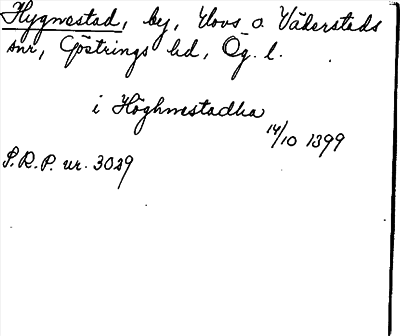 Hygnestad, by, Hovs o Väderstads
snr, Göstrings hd, Ög. l.
i Höghnestadha
14/10 1399
S.R.P. nr. 3029